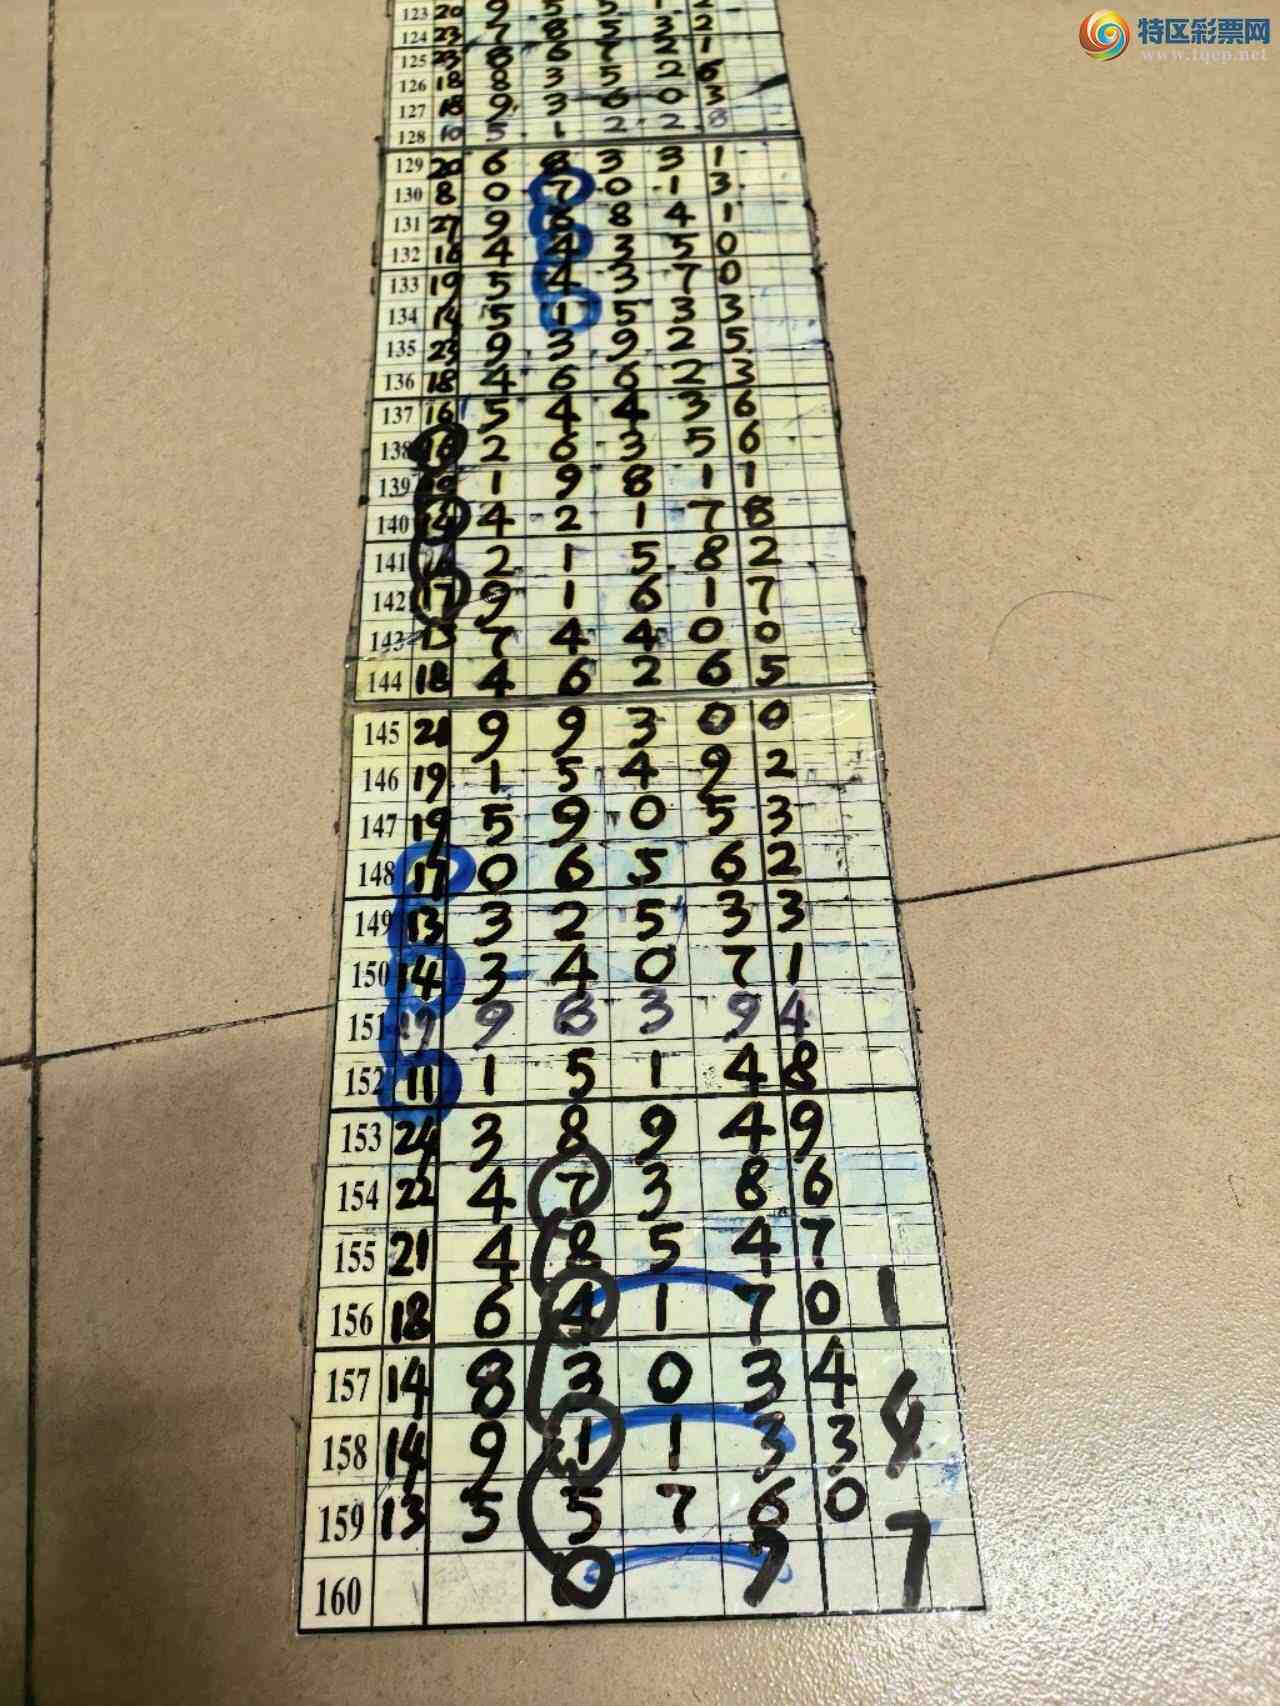 特区彩票网
www.tqcp.net
123 20 9 5 5 1 2
124 23 7 8 5 3 2
125 23 8 6 7 2 1
126 18 8 3 5 2 6
127 18 9 3 6 0 3
128 10 5 1 2 2 8
129 20 6 8 3 3 1
130 8 0 7 0 1 3
131 27 9 6 8 4 1
132 16 4 4 3 5 0
133 19 5 4 3 7 0
134 14 5 1 5 3 3
135 23 9 3 9 2 5
136 18 4 6 6 2 3
137 16 5 4 4 3 6
138 16 2 6 3 5 6
139 1 9 8 1 1
140 14 4 2 1 7 8
141 2 1 5 8 2
142 17 9 1 6 1 7
143 15 7 4 4 0 0
144 18 4 6 2 6 5
145 21 9 9 3 0 0
146 19 1 5 4 9 2
147 19 5 9 0 5 3
148 17 0 6 5 6 2
149 13 3 2 5 3 3
150 14 3 4 0 7 1
151 9 8 3 9 4
152 11 1 5 1 4 8
153 24 3 8 9 4 9
154 22 4 7 3 8 6
155 21 4 8 5 4 7
156 18 6 4 1 7 0 1
157 14 8 3 0 3 4
158 14 9 1 1 3 3 4
159 13 5 5 7 6 0
160 0 7 7